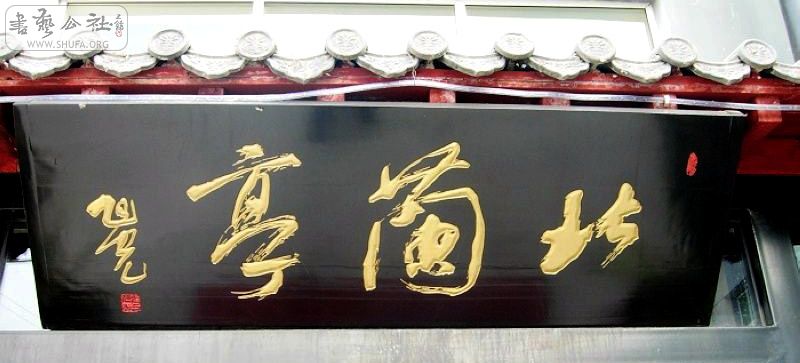 書藝公社
WWW.SHUFA.ORG
北蘭亭